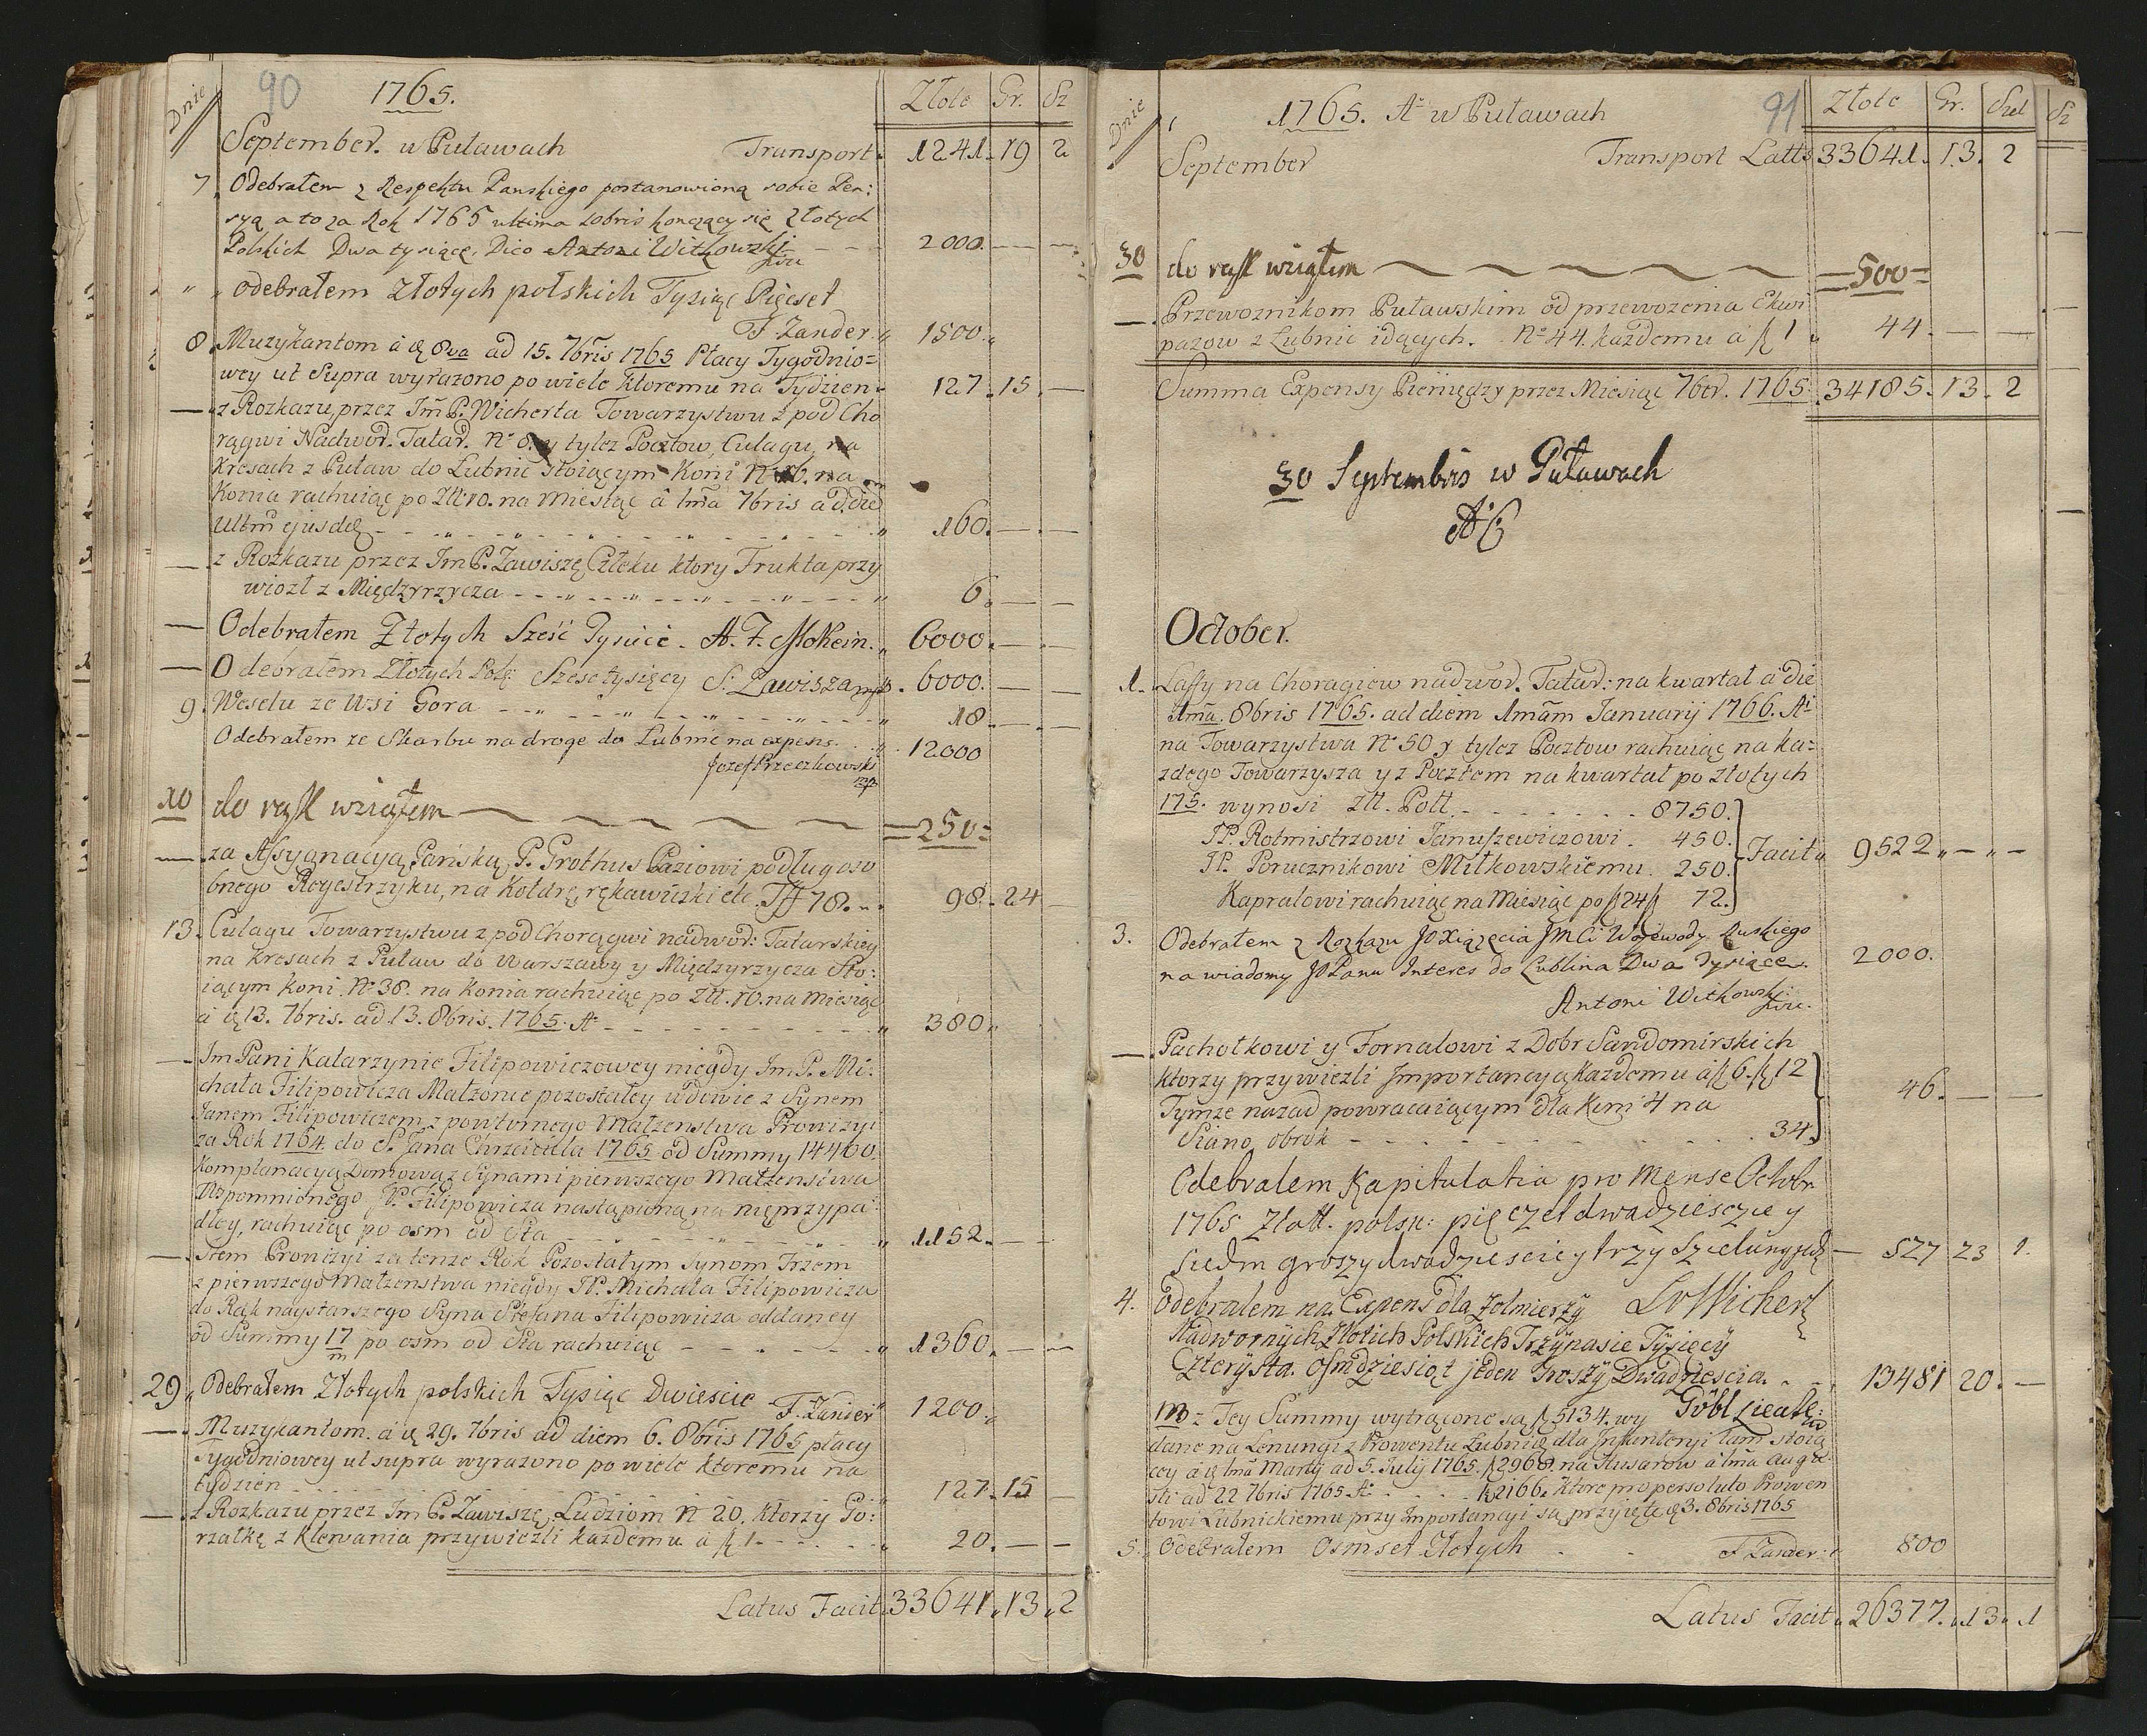 90
Dnie
1765.
Złote Gr. Sz
September. w Puławach Transport. 1241. 19 2
7. Odebrałem z Respektu Pańskiego postanowioną sobie Pen:
syą a to za Rok 1765 ultima Xbris kończący się Złotych
Polskich Dwa tysiące, Dico Antoni Witkowski 2000. — —
" " odebrałem Złotych polskich Tysiąc Pięcset
F. Zander " 1500 "
8. Muzykantom à 8va ad 15. 7bris 1765 Płacy Tygodnio=
wey ut Supra wyrazono po wiele ktoremu na Tydzien. 127. 15. —
— z Rozkazu przez Jm P. Wicherta Towarzystwu z pod Cho
rągwi Nadwor. Tatar. No 8. y tylez Pocztow, Culagu, na
Kresach z Puław do Łubnic stoiącym Koni No 16. na
Konia rachuiąc po Złł 10. na Miesiąc à 1ma 7bris ad die
Ultm ejusdē 160. — —
— z Rozkazu przez Jm P. Zawiszę Człeku ktory Frukta przy
wiozł z Międzyrzycza 6. — —
— Odebrałem Złotych Sześć Tysiiće. A. F. Mokein. " 6000. — —
— Odebrałem Złotych Pols: Szesc tysięcy S. Zawisza mp . 6000. — —
9. Weselu ze Wsi Gora 18. — —
Odebrałem ze Skarbu na droge do Łubnic na expens. 12000
Jozef Przeczkowski
mp
10 do rąk wziąłem = 250 =
— za Assygnacyą Pańską, P. Grothus Paziowi podług oso
bnego Regestrzyku, na Kołdrę, rękawiczki etc. Tff 78. 98. 24 —
13. Culagu Towarzystwu z pod Chorągwi nadwor: Tatarskiey
na Kresach z Puław do Warszawy y Międzyrzycza Sto:
iącym Koni. No 38. na Konia rachuiąc po Złł. 10. na Miesiąc
à 13. 7bris. ad 13. 8bris. 1765. A° " 380 "
— Jm Pani Katarzynie Filipowiczowey niegdy Jm P. Mi:
chała Filipowicza Małzonce pozostałey wdowie z Synem
Janem Filipowiczem z powtornego Małzenstwa Prowizyi
za Rok 1764. do S. Jana Chrzciciela 1765 od Summy 14400.
Komplanacyą Domową z Synami pierwszego Małzenstwa
Wzpomnionego JP. Filipowicza nastąpioną na nię przypa:
dłey, rachuiąc po osm od Sta " 1152. — —
— Item Prowizyi za tenze Rok Pozostałym Synom Trzem
z pierwszego Małzenstwa niegdy JP. Michała Filipowicza
do Rąk naystarszego Syna Stefana Filipowicza oddaney
od Summy 17 m po osm od Sta rachuiąc " 1360. — —
29. Odebrałem Złotych polskich Tysiąc Dwiescie F. Zander 1200 "
— Muzykantom. à 29. 7bris ad diem 6. 8bris 1765 płacy
tygodniowey ut supra wyrazono po wiele ktoremu na
tydzien 127. 15 —
— z Rozkazu przez Jm P. Zawiszę, Ludziom No 20. ktorzy Go:
rzałkę z Klewania przywiezli każdemu à f 1 20. — —
Latus Facit 33641. 13. 2
Dnie
1765. A° w Puławach
91
Złote Gr. Szel
Sz
September Transport Latts 33641. 13. 2
30 do rąk wziąłem = 500 =
— Przewoznikom Puławskim od przewozenia Ekwi
pazow z Łubnic idących. No 44. każdemu à f 1 " 44. — —
Summa Expensy Pieniędzy przez Miesiąc 7ber. 1765 34185. 13. 2
30 Septembris w Puławach
AC
October.
1. Laffy na Choragiew nadwor. Tatar: na kwartał à die
1ma. 8bris 1765. ad diem 1mam Januarij 1766. Ai
na Towarzystwa No 50 y tylez Pocztow rachuiąc na ka=
zdego Towarzysza y z Pocztem na kwartał po złotych
175. wynosi Złł. Poll. 8750.
JP. Rotmistrzowi Januszewiczowi. 450.
JP. Porucznikowi Miłkowskiemu. 250.
Kapralowi rachuiąc na Miesiąc po f 24 f 72. Facit " 9522 " — " —
3. Odebrałem z Rozkazu JO Xiązęcia JMCi Wojewody Ruskiego
na wiadomy JO Panu Interes do Lublina Dwa Tysiące. 2000.
Antoni Witkowski
— Pachołkowi y Fornalowi z Dobr Sandomirskich
ktorzy przywiezli Importancyą każdemu à f 6. f 12
Tymze nazad powracaiącym dla Koni 4 na
Siano, obrok 34. 46. — —
Odebralem Kapitulatia pro Mense Octobr
1765 Złott. polsk: pięczet dwadziesczie y
siedm groszy dwadziescie y trzy Szelungjede — 527 23 1.
4. Odebralem na Expens dla Zolnierzy LvWichert
Nadwornych Złotich Polskich Trzÿnasie Tÿsięcÿ
Cztery sta. Osmdziesiąt jeden Groszÿ Dwadziescia. 13481 20. —
Göbl Lieute:
NB z Tey Summy wytrącone są f 5134. wy
dane na Lenungi z Prowentu Łubnic dla Infanteryi tam stoią
cey à 1ma Martij ad 5. Julij 1765. f 2968. na Husarow à 1ma Augu
sti ad 22 7bris 1765 A° f 2166. Ktore pro persoluto Prowen
towi Łubnickiemu przy Importancyi są przyięte 3. 8bris 1765
5. Odebrałem Osmset Złotych F. Zander 800
Latus Facit. 26377. 13. 1